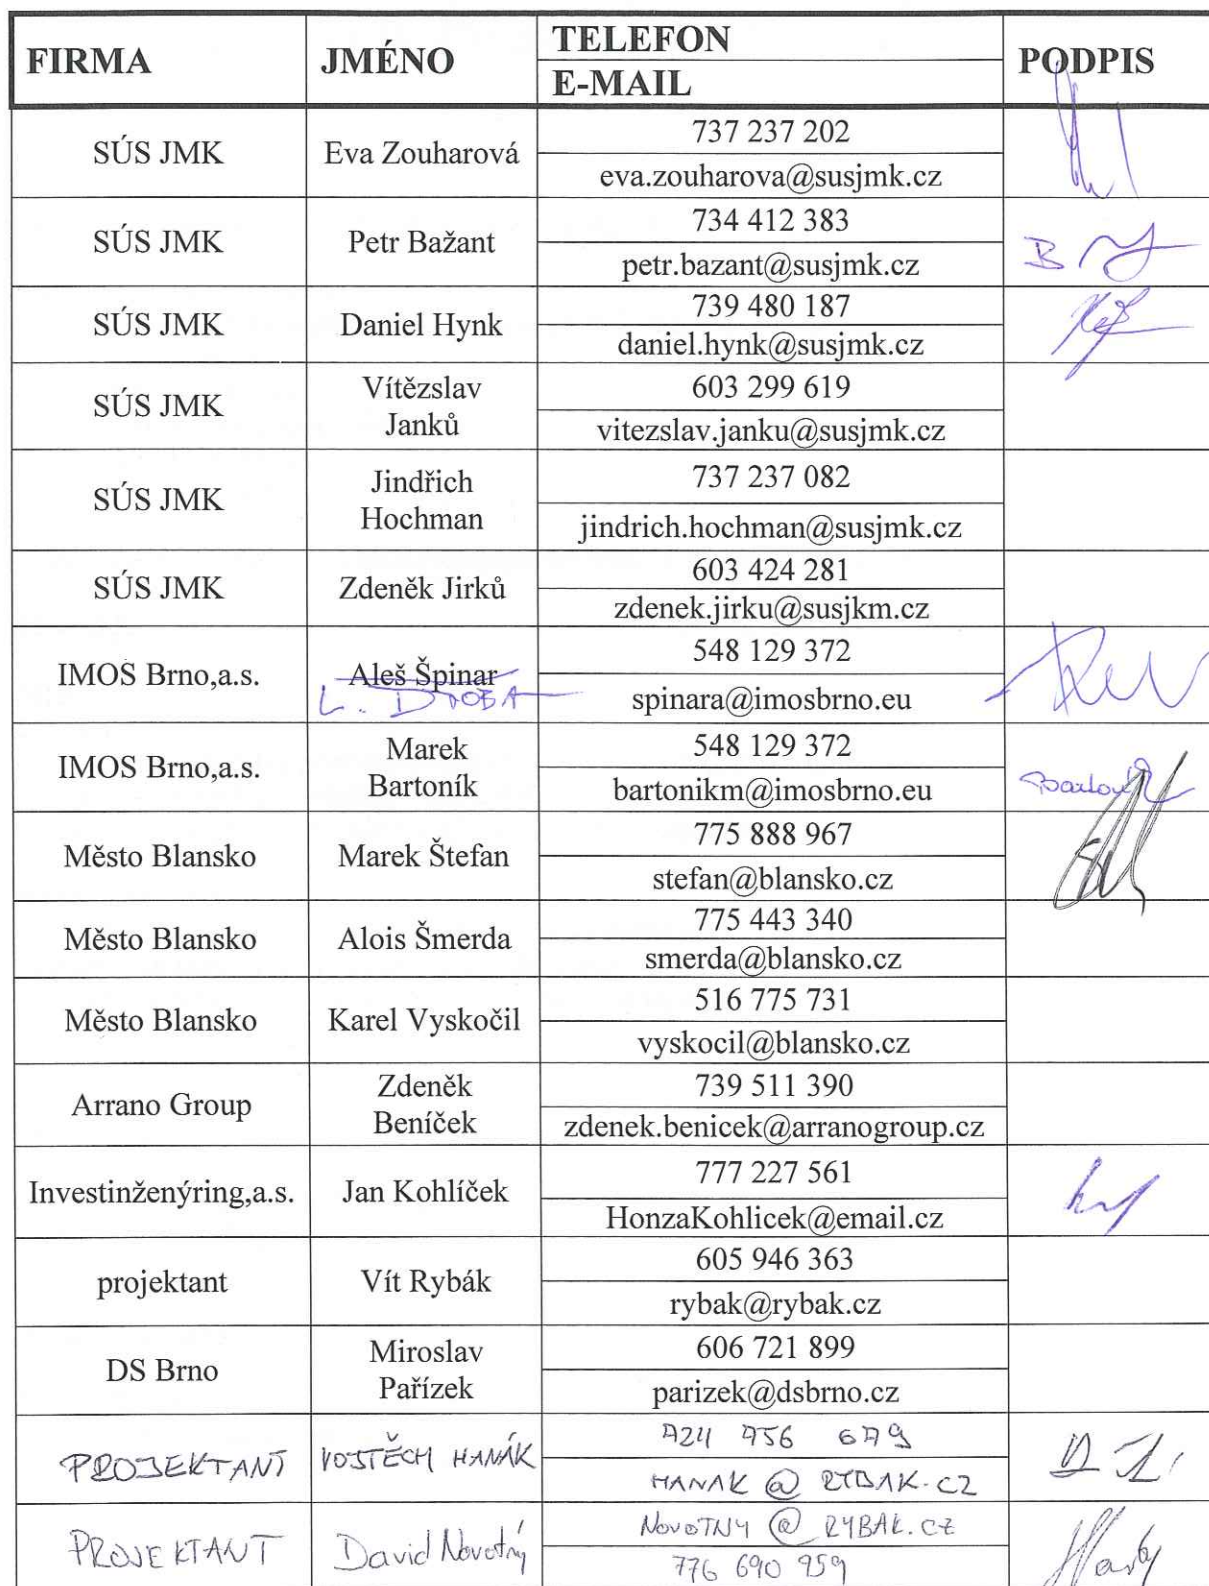 FIRMA JMÉNO TELEFON PODPIS
E-MAIL
SÚS JMK Eva Zouharová 737 237 202
eva.zouharova@susjmk.cz
SÚS JMK Petr Bažant 734 412 383
petr.bazant@susjmk.cz
SÚS JMK Daniel Hynk 739 480 187
daniel.hynk@susjmk.cz
SÚS JMK Vítězslav Janků 603 299 619
vitezslav.janku@susjmk.cz
SÚS JMK Jindřich Hochman 737 237 082
jindrich.hochman@susjmk.cz
SÚS JMK Zdeněk Jirků 603 424 281
zdenek.jirku@susjkm.cz
IMOS Brno,a.s. Aleš Špinar 548 129 372
L. DROBA spinara@imosbrno.eu
IMOS Brno,a.s. Marek Bartoník 548 129 372
bartonikm@imosbrno.eu
Město Blansko Marek Štefan 775 888 967
stefan@blansko.cz
Město Blansko Alois Šmerda 775 443 340
smerda@blansko.cz
Město Blansko Karel Vyskočil 516 775 731
vyskocil@blansko.cz
Arrano Group Zdeněk Beníček 739 511 390
zdenek.benicek@arranogroup.cz
Investinženýring,a.s. Jan Kohlíček 777 227 561
HonzaKohlicek@email.cz
projektant Vít Rybák 605 946 363
rybak@rybak.cz
DS Brno Miroslav Pařízek 606 721 899
parizek@dsbrno.cz
PROJEKTANT VOJTĚCH HANÁK 724 756 679
HANAK @ RYBAK.CZ
PROJEKTANT David Novotný NOVOTNY @ RYBAK.CZ
776 690 959